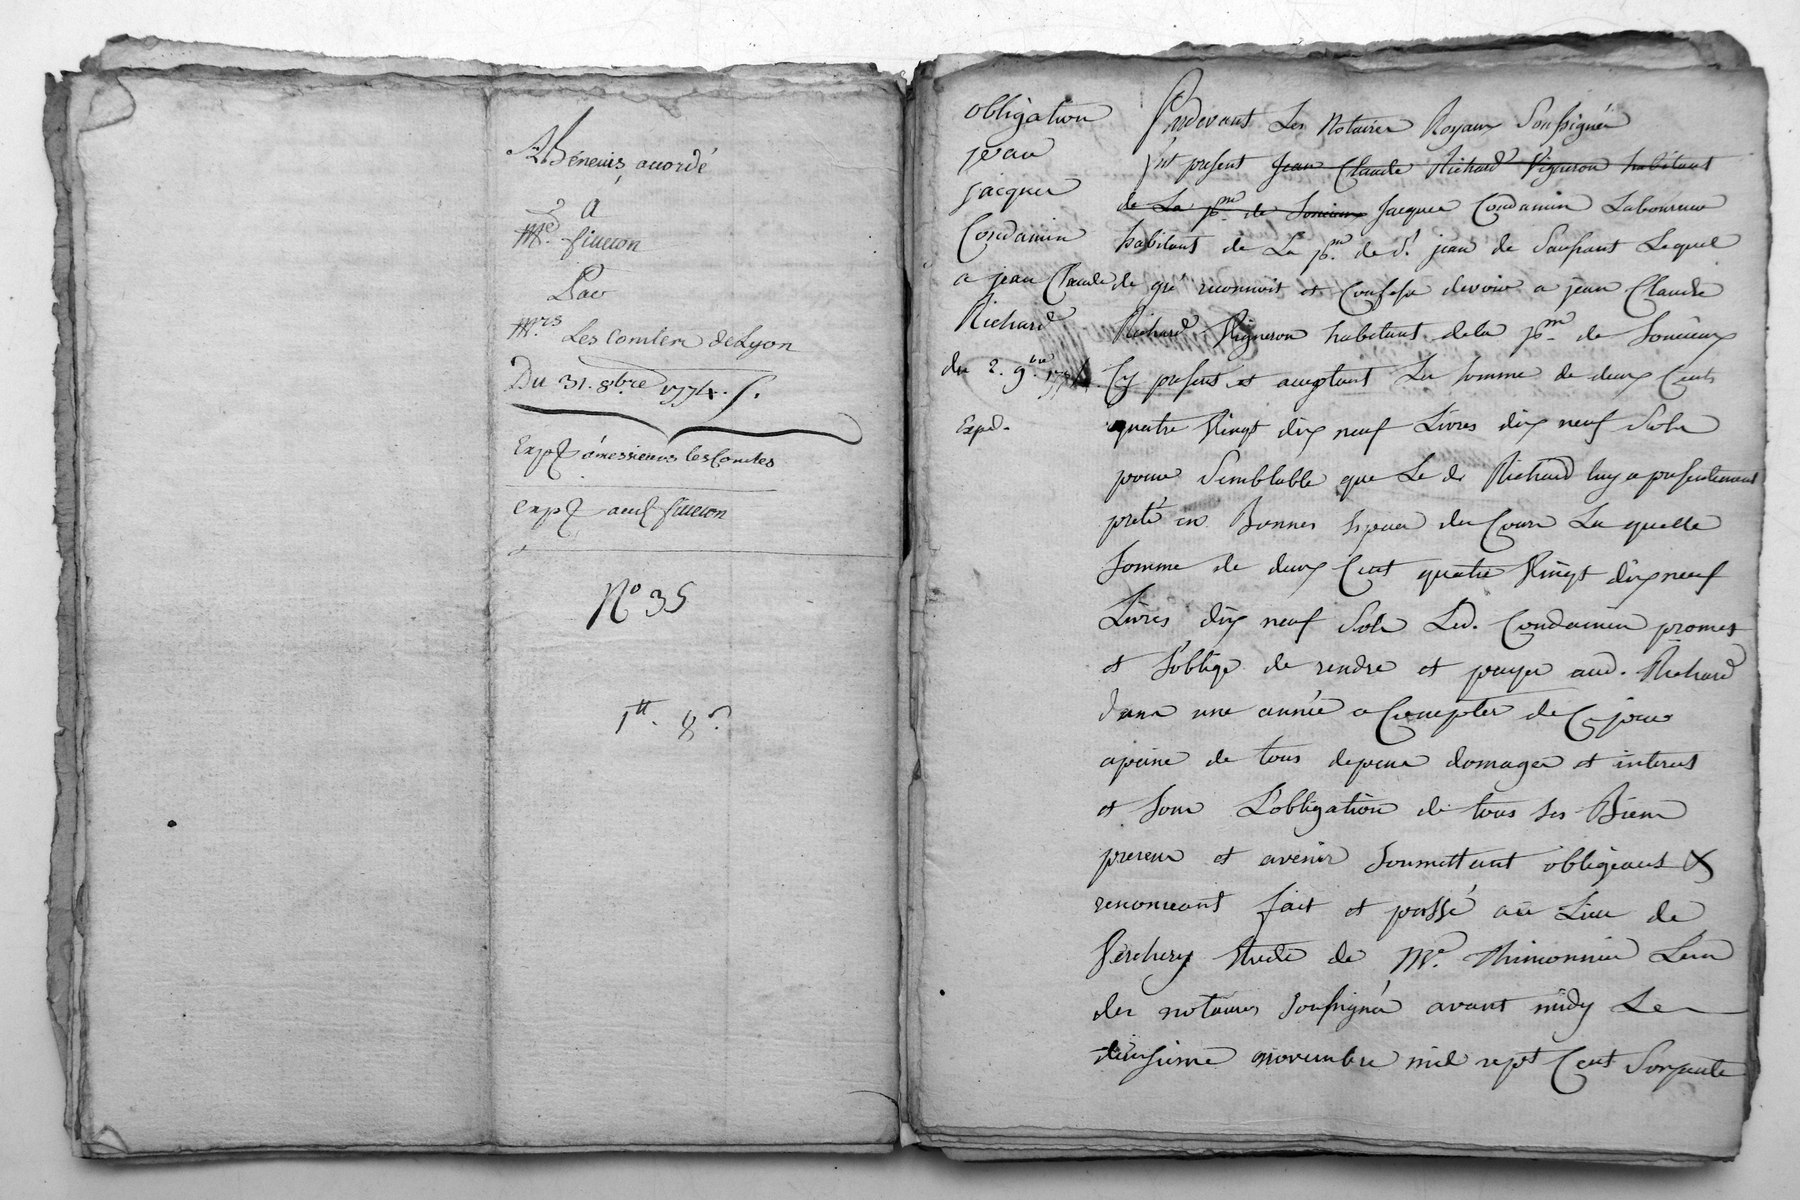 Abenevis accordé
A
Me. fiueton
Par
Mrs Les Comtes de Lyon
Du 31. 8bre 1774.
Exp. a messieurs les Comtes
Exp. aud. fiueton
No 35
1tt. 8s
obligation
jean
jacques
Condamin
a jean Claude
Richard
du 2. 9bre. 1774.
Exped.
Pardevant Les Notaires Royaux Soussignés
fut present Jean Claude Richard Vigneron habitant
de La psse. de Soucieux Jacques Condamin Laboureur
habitant de La psse. de St. jean de Laussant Lequel
de gré reconnoit et Confesse devoir a jean Claude
Richard Vigneron habitant de la psse. de Soucieux
Cy present et acceptant La somme de deux Cents
quatre Vingt dix neuf Livres dix neuf Sols
pour Semblable que Le dt Richard luy a presentement
preté en Bonnes Especes du Cours La quelle
somme de deux Cent quatre Vingt dix neuf
Livres dix neuf Sols Led. Condamin promet
et s'oblige de rendre et payer aud. Richard
dans une année a Compter de Ce jour
apeine de tous depens domages et interets
et sous L'obligation de tous ses Biens
presens et avenir soumettant obligeant &
renonceant fait et passé au Lieu de
Verchery Etude de Me. Thimonnier L'un
des notaires soussignés avant midy Le
deuxieme novembre mil sept Cent Soixante